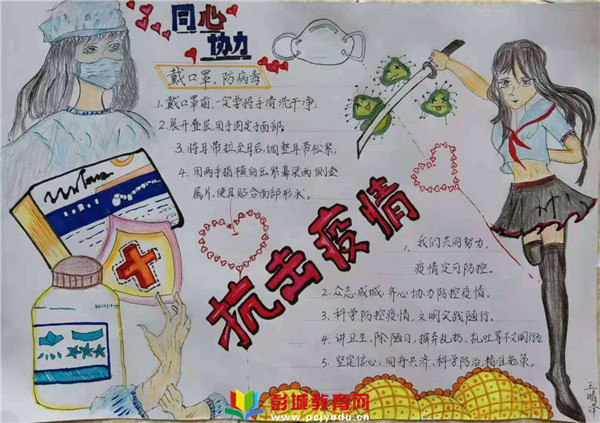 同心
协力
戴口罩,防病毒
1.戴口罩前,一定要将手清洗干净。
2.展开叠层,用手固定于面部。
3.将耳带拉至耳后,调整耳带松紧。
4.用两手指横向压紧鼻梁两侧金
属片,使其贴合面部形状。
抗击疫情
1、我们共同努力,
疫情定可防控。
2.众志成城,齐心协力防控疫情。
3、科学防控疫情,文明实践随行。
4、讲卫生、除陋习,摒弃乱扔、乱吐等不文明行为
5、坚定信心、同舟共济、科学防治、精准施策。
王晴泽
彭城教育网
www.pcjyedu.cn